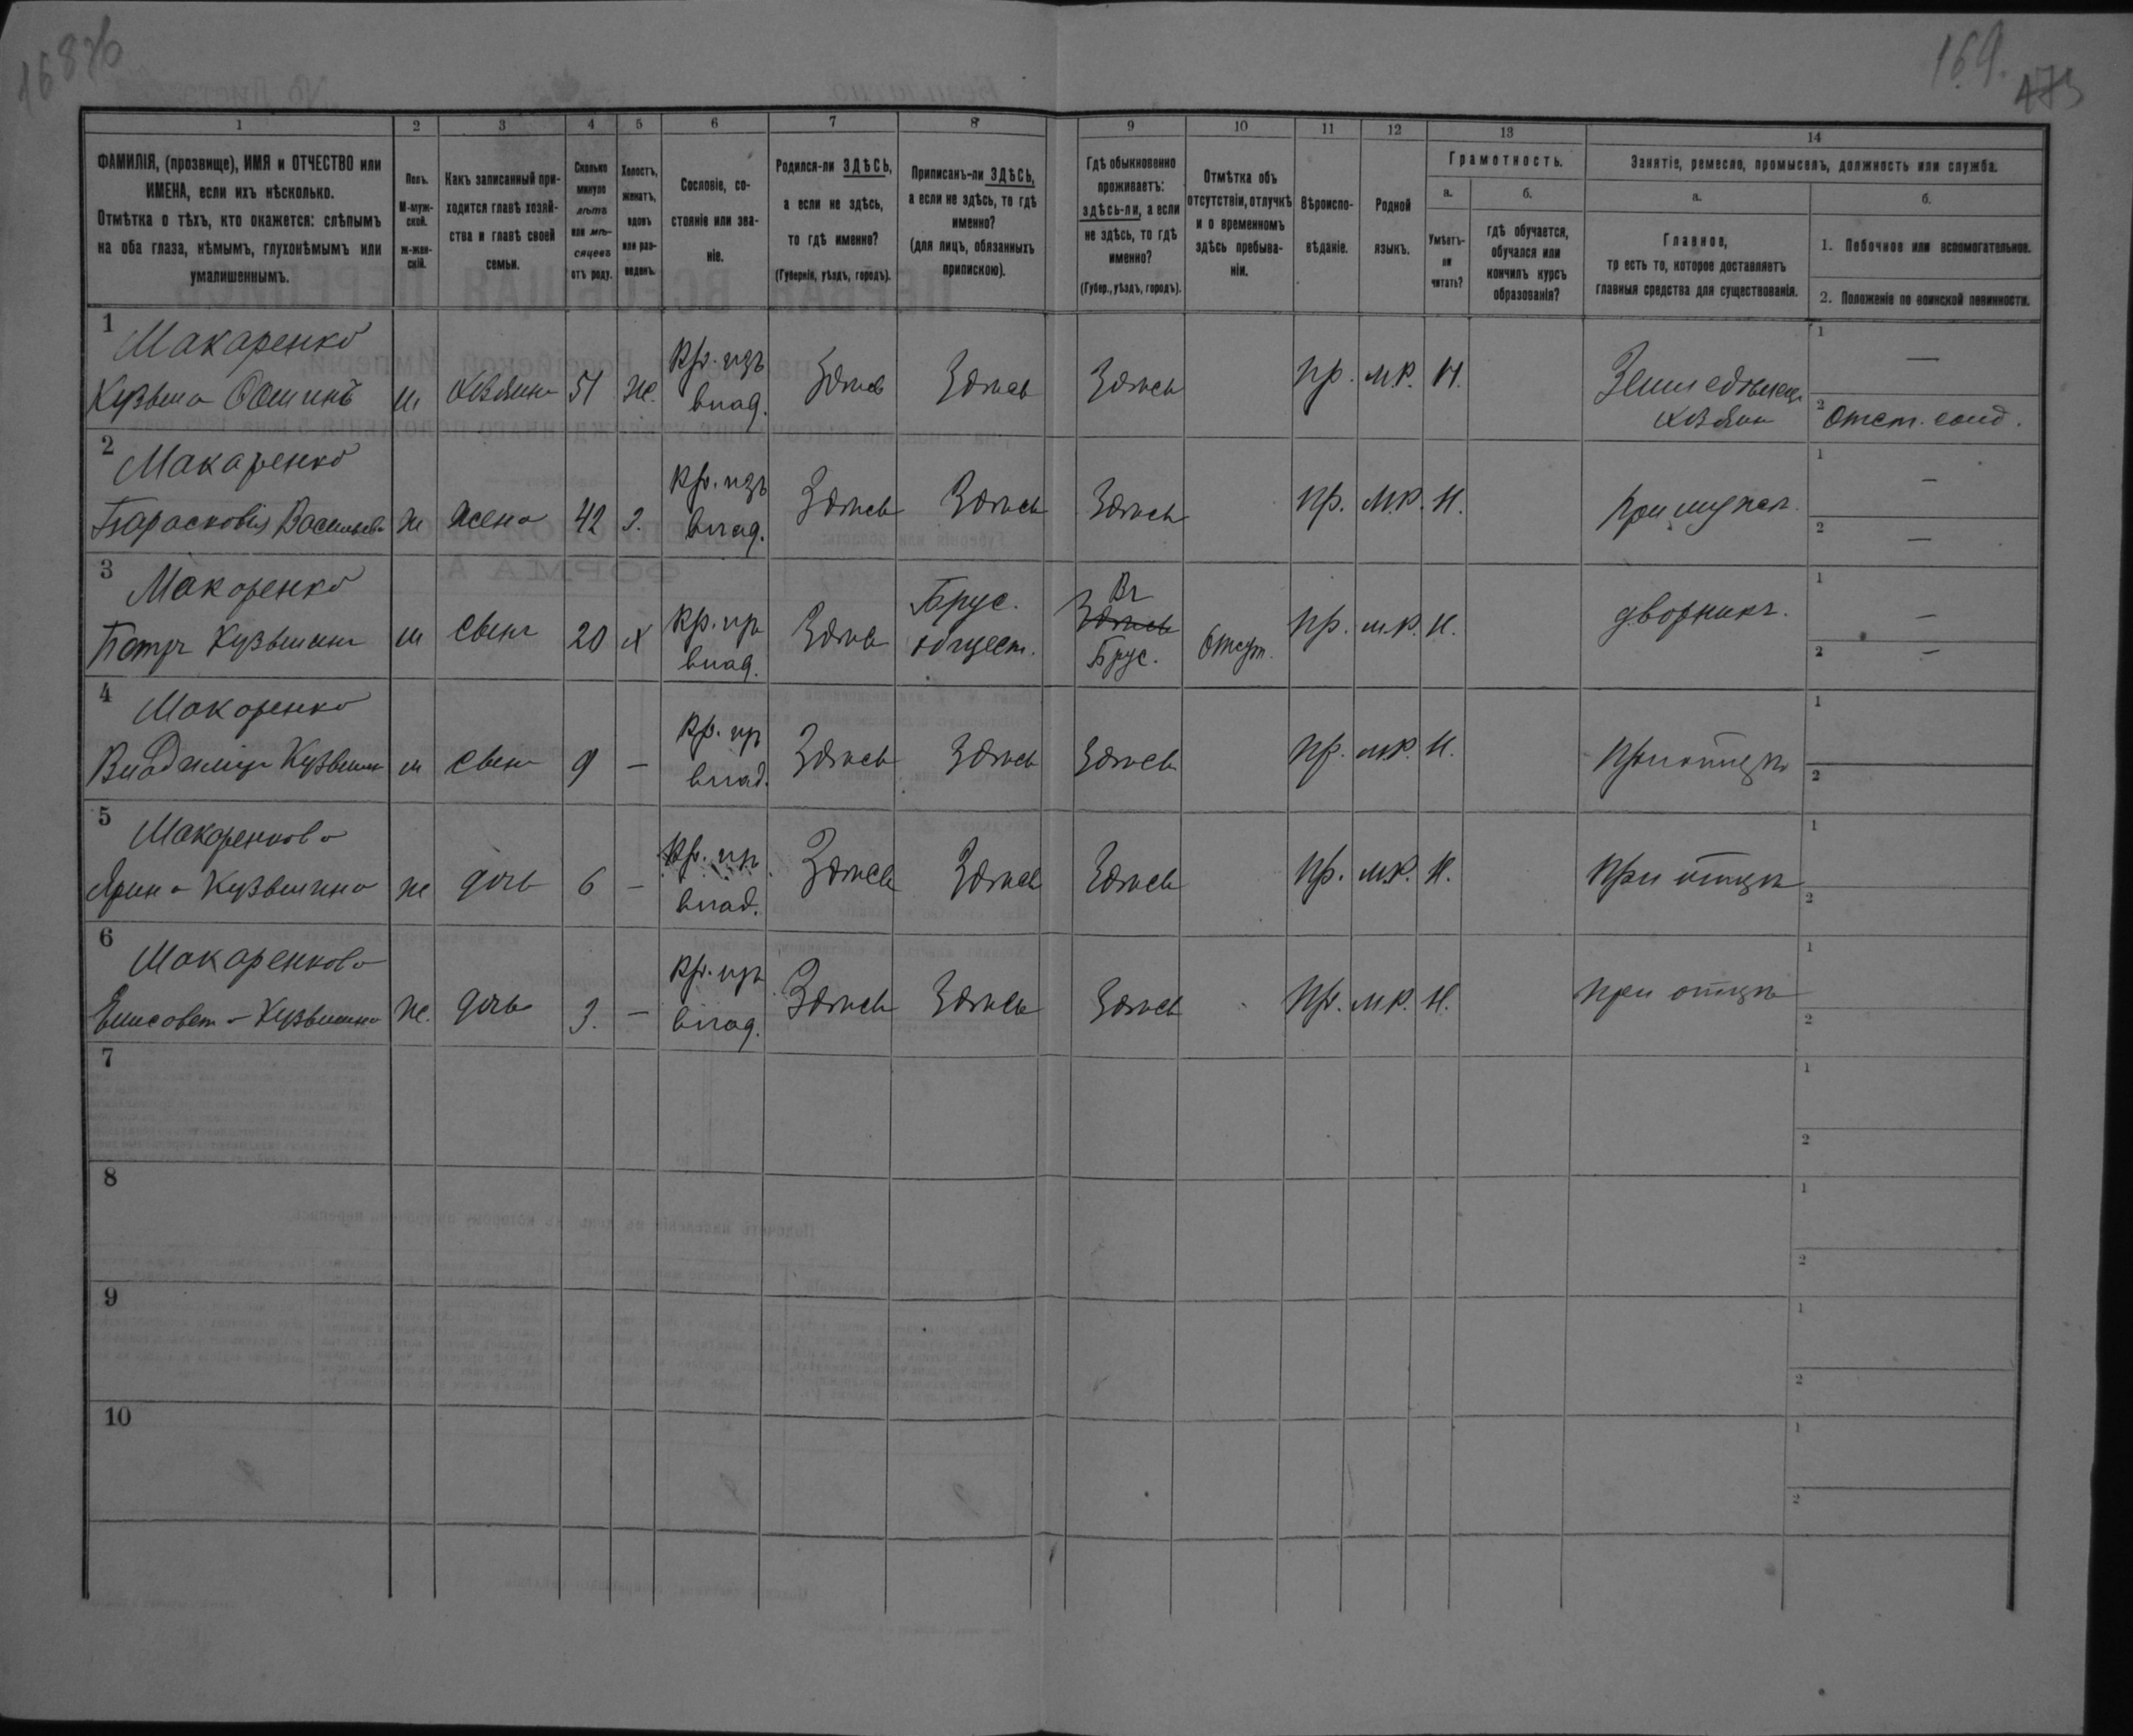 168 об
169.
173
1 2 3 4 5 6 7 8 9 10 11 12 13 14
ФАМИЛІЯ, (прозвище), ИМЯ и ОТЧЕСТВО или
ИМЕНА, если ихъ нѣсколько.
Отмѣтка о тѣхъ, кто окажется: слѣпымъ
на оба глаза, нѣмымъ, глухонѣмымъ или
умалишеннымъ.
Полъ.
М-муж-
ской.
ж-жен-
скій.
Какъ записанный при-
ходится главѣ хозяй-
ства и главѣ своей
семьи.
Сколько
минуло
лѣтъ
или мѣ-
сяцевъ
отъ роду.
Холостъ,
женатъ,
вдовъ
или раз-
веденъ.
Сословіе, со-
стояніе или зва-
ніе.
Родился-ли ЗДѢСЬ,
а если не здѣсь,
то гдѣ именно?
(Губернія, уѣздъ, городъ).
Приписанъ-ли ЗДѢСЬ,
а если не здѣсь, то гдѣ
именно?
(для лицъ, обязанныхъ
припискою).
Гдѣ обыкновенно
проживаетъ:
здѣсь-ли, а если
не здѣсь, то гдѣ
именно?
(Губер., уѣздъ, городъ).
Отмѣтка объ
отсутствіи, отлучкѣ
и о временномъ
здѣсь пребыва-
ніи.
Вѣроиспо-
вѣданіе.
Родной
языкъ.
Грамотность.
а.
Умѣетъ-
ли
читать?
б.
гдѣ обучается,
обучался или
кончилъ курсъ
образованія?
Занятіе, ремесло, промыселъ, должность или служба.
а.
Главное,
то есть то, которое доставляетъ
главныя средства для существованія.
б.
1. Побочное или вспомогательное.
2. Положеніе по воинской повинности.
1 Макаренко
Кузьма м хозяинъ 51 ж. Кр. изъ влад. Здѣсь Здѣсь Здѣсь пр. м.р. н. Земледѣлецъ хозяин 1 — 2 Отст. солд.
2 Макаренко
Парасковія Васильева ж жена 42 з. Кр. изъ влад. Здѣсь Здѣсь Здѣсь пр. м.р. н. При мужѣ. 1 — 2 —
3 Макаренко
Петръ Кузьминъ м сынъ 20 х Кр. изъ влад. Здѣсь Брус. общест. Въ Здѣсь Брус. Отсут. пр. м.р. н. дворникъ. 1 — 2 —
4 Макаренко
Владимиръ Кузьминъ м сынъ 9 — Кр. изъ влад. Здѣсь Здѣсь Здѣсь пр. м.р. н. При отцѣ 1 2
5 Макаренкова
Ярина Кузьмина ж дочь 6 — Кр. изъ влад. Здѣсь Здѣсь Здѣсь пр. м.р. н. При отцѣ 1 2
6 Макаренкова
Елисавета Кузьмина ж. дочь 3. — Кр. изъ влад. Здѣсь Здѣсь Здѣсь пр. м.р. н. при отцѣ 1 2
7 1 2
8 1 2
9 1 2
10 1 2